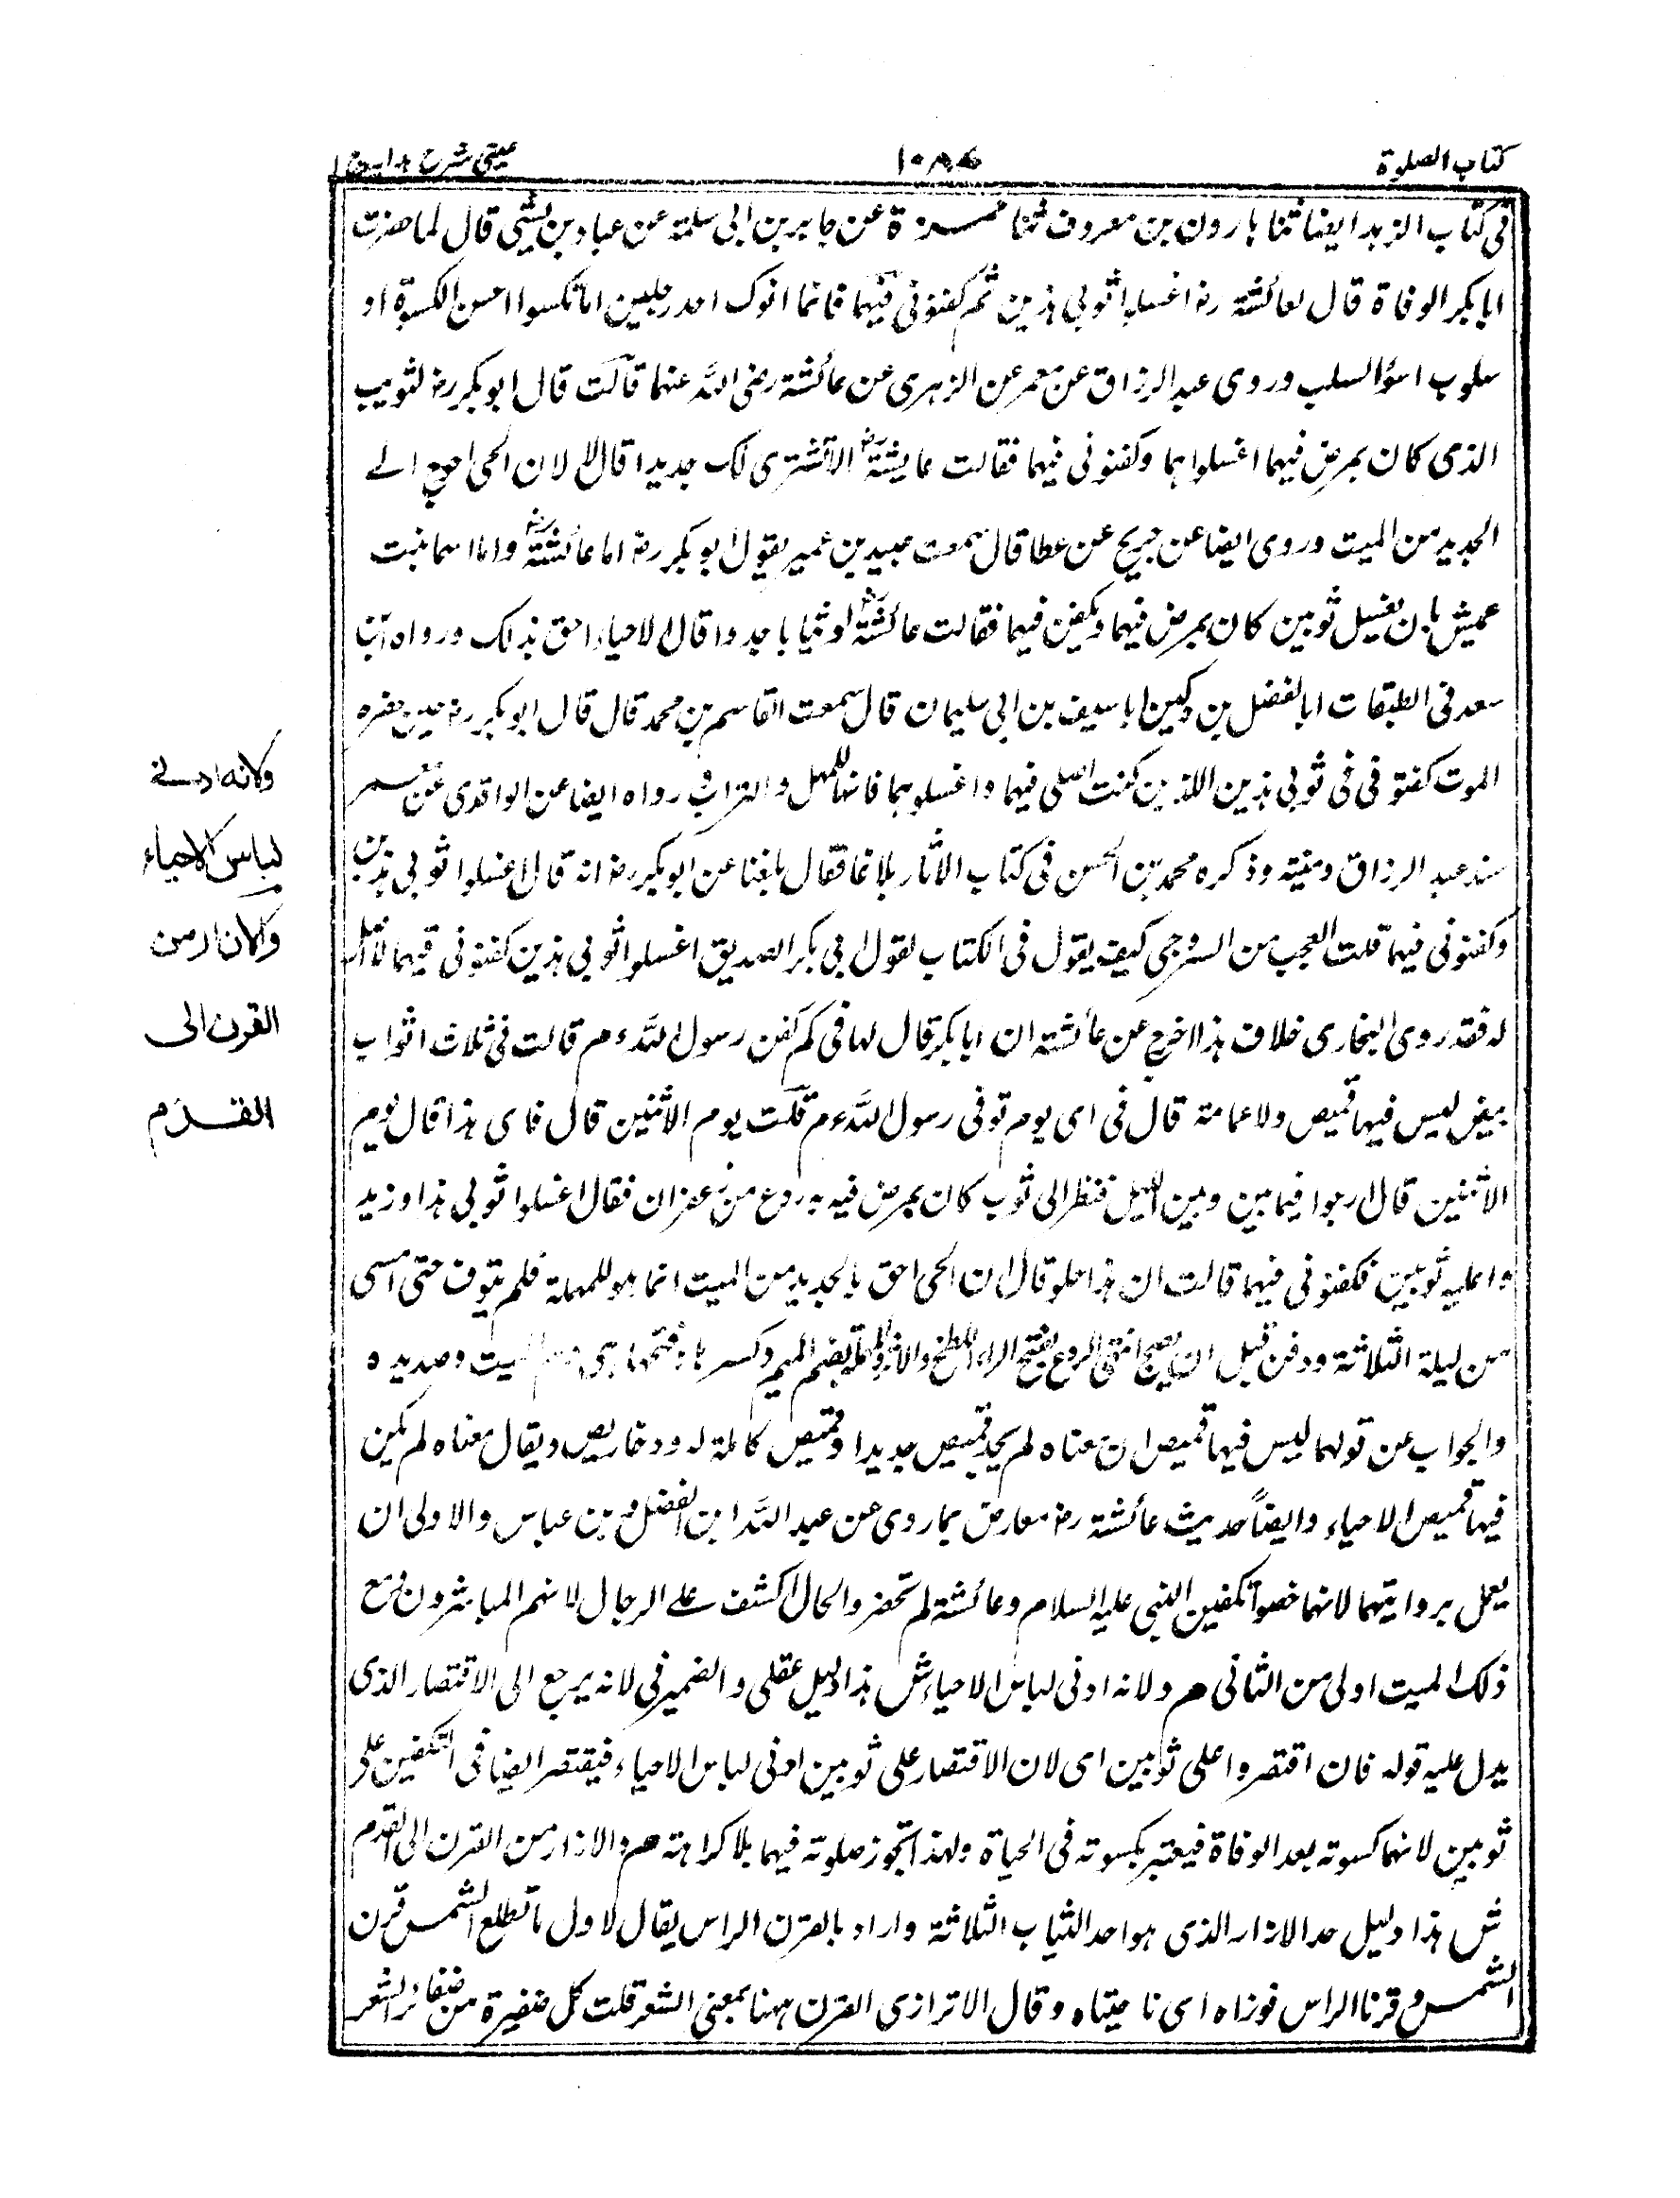 كتاب الصلوة
١٠٨٦
عينى شرح هدايه ج ١
فى كتاب الزهد ايضا ثنا هارون بن معروف ثنا ضمرة عن جابر بن ابى سلمة عن عباد بن قال لما حضرت
ابا بكر الوفاة قال لعائشة رض اغسلى ثوبى هذين ثم كفنونى فيهما فانما ابوك احد رجلين اما مكسوا احسن الكسوة او
سلوب اسوأ السلب وروى عبد الرزاق عن معمر عن الزهرى عن عائشة رضى الله عنها قالت قال ابو بكر رض لثوبيه
الذى كان يمرض فيهما اغسلوا هما وكفنونى فيهما فقالت عايشة رض الا نشترى لك جديدا قال لا لان الحى احوج الى
الجديد من الميت وروى ايضا عن جريج عن عطا قال سمعت عبيد بن عمير يقول ابو بكر رض اما عائشة رض واما اسما بنت
عميش بان تغسل ثوبين كان يمرض فيهما ويكفن فيهما فقالت عائشة رض او ثيابا جددا قال الاحياء احق بذلك ورواه ابن
سعد فى الطبقات انا الفضل بن دكين انا سيف بن ابى سليمان قال سمعت القاسم بن محمد قال قال ابو بكر رض حين حضره
الموت كفنونى فى ثوبى هذين اللذين كنت اصلى فيهما واغسلوهما فانهما للمهل والتراب ورواه ايضا عن الواقدى عن معمر
سند عبد الرزاق ومتنه وذكره محمد بن الحسن فى كتاب الاثار بلاغا فقال بلغنا عن ابو بكر رض انه قال اغسلوا ثوبى هذين
وكفنونى فيهما قلت العجب من السروجى كيف يقول فى الكتاب لقول ابى بكر الصديق اغسلوا ثوبى هذين كفنونى فيهما لا اصل
له فقد روى البخارى خلاف هذا اخرج عن عائشة ان ابا بكر قال لها فى كم كفن رسول الله ء م قالت فى ثلاث اثواب
بيض ليس فيها قميص ولا عمامة قال فى اى يوم توفى رسول الله ء م قلت يوم الاثنين قال فاى هذا قال يوم
الاثنين قال ارجوا فيما بين وبين الليل فنظر الى ثوب كان يمرض فيه به ردع من زعفران فقال اغسلوا ثوبى هذا وزيد
وا عليه ثوبين فكفنونى فيهما قالت ان هذا خلق قال ان الحى احق بالجديد من الميت انما هو للمهلة فلم يتوف حتى امسى
من ليلة الثلاثة ودفن قبل ان يصبح انتهى الردع بفتح الراء اللطخ والاثر والمهلة بضم الميم وكسرها وفتحها الميت وصديده
والجواب عن قولها ليس فيها قميص ان معناه لم يجد قميص جديدا وقميص كاملة له ودخاريص ويقال معناه لم يكن
فيها قميص الاحياء وايضاً حديث عائشة رض معارض بما روى عن عبد الله ابن الفضل و بن عباس والاولى ان
يعمل بروايتهما لانهما خصوا تكفين النبى عليه السلام وعائشة لم تحضر والحال اكشف على الرجال لانهم المباشرون مع
ذلك الميت اولى من الثانى هم ولانه ادنى لباس الاحياء ش هذا دليل عقلى والضمير فى لانه يرجع الى الاقتصار الذى
يدل عليه قوله فان اقتصروا على ثوبين اى لان الاقتصار على ثوبين ادنى لباس الاحياء فيقتصر ايضا فى التكفين على
ثوبين لانهما كسوته بعد الوفاة فيعتبر بكسوته فى الحياة ولهذا تجوز صلوته فيهما بلا كراهة هم والازار من القرن الى القدم
ش هذا دليل حد الازار الذى هو احد الثياب الثلاثة واراد بالقرن الراس يقال لاول ما تطلع الشمس قرن
الشمس و قرنا الراس فوداه اى ناحيتاه وقال الاترازى القرن ههنا بمعنى الشعر قلت كل ضفيرة من ضفائر الشعر
ولانه ادنى
لباس الاحياء
والازار من
القرن الى
القدم